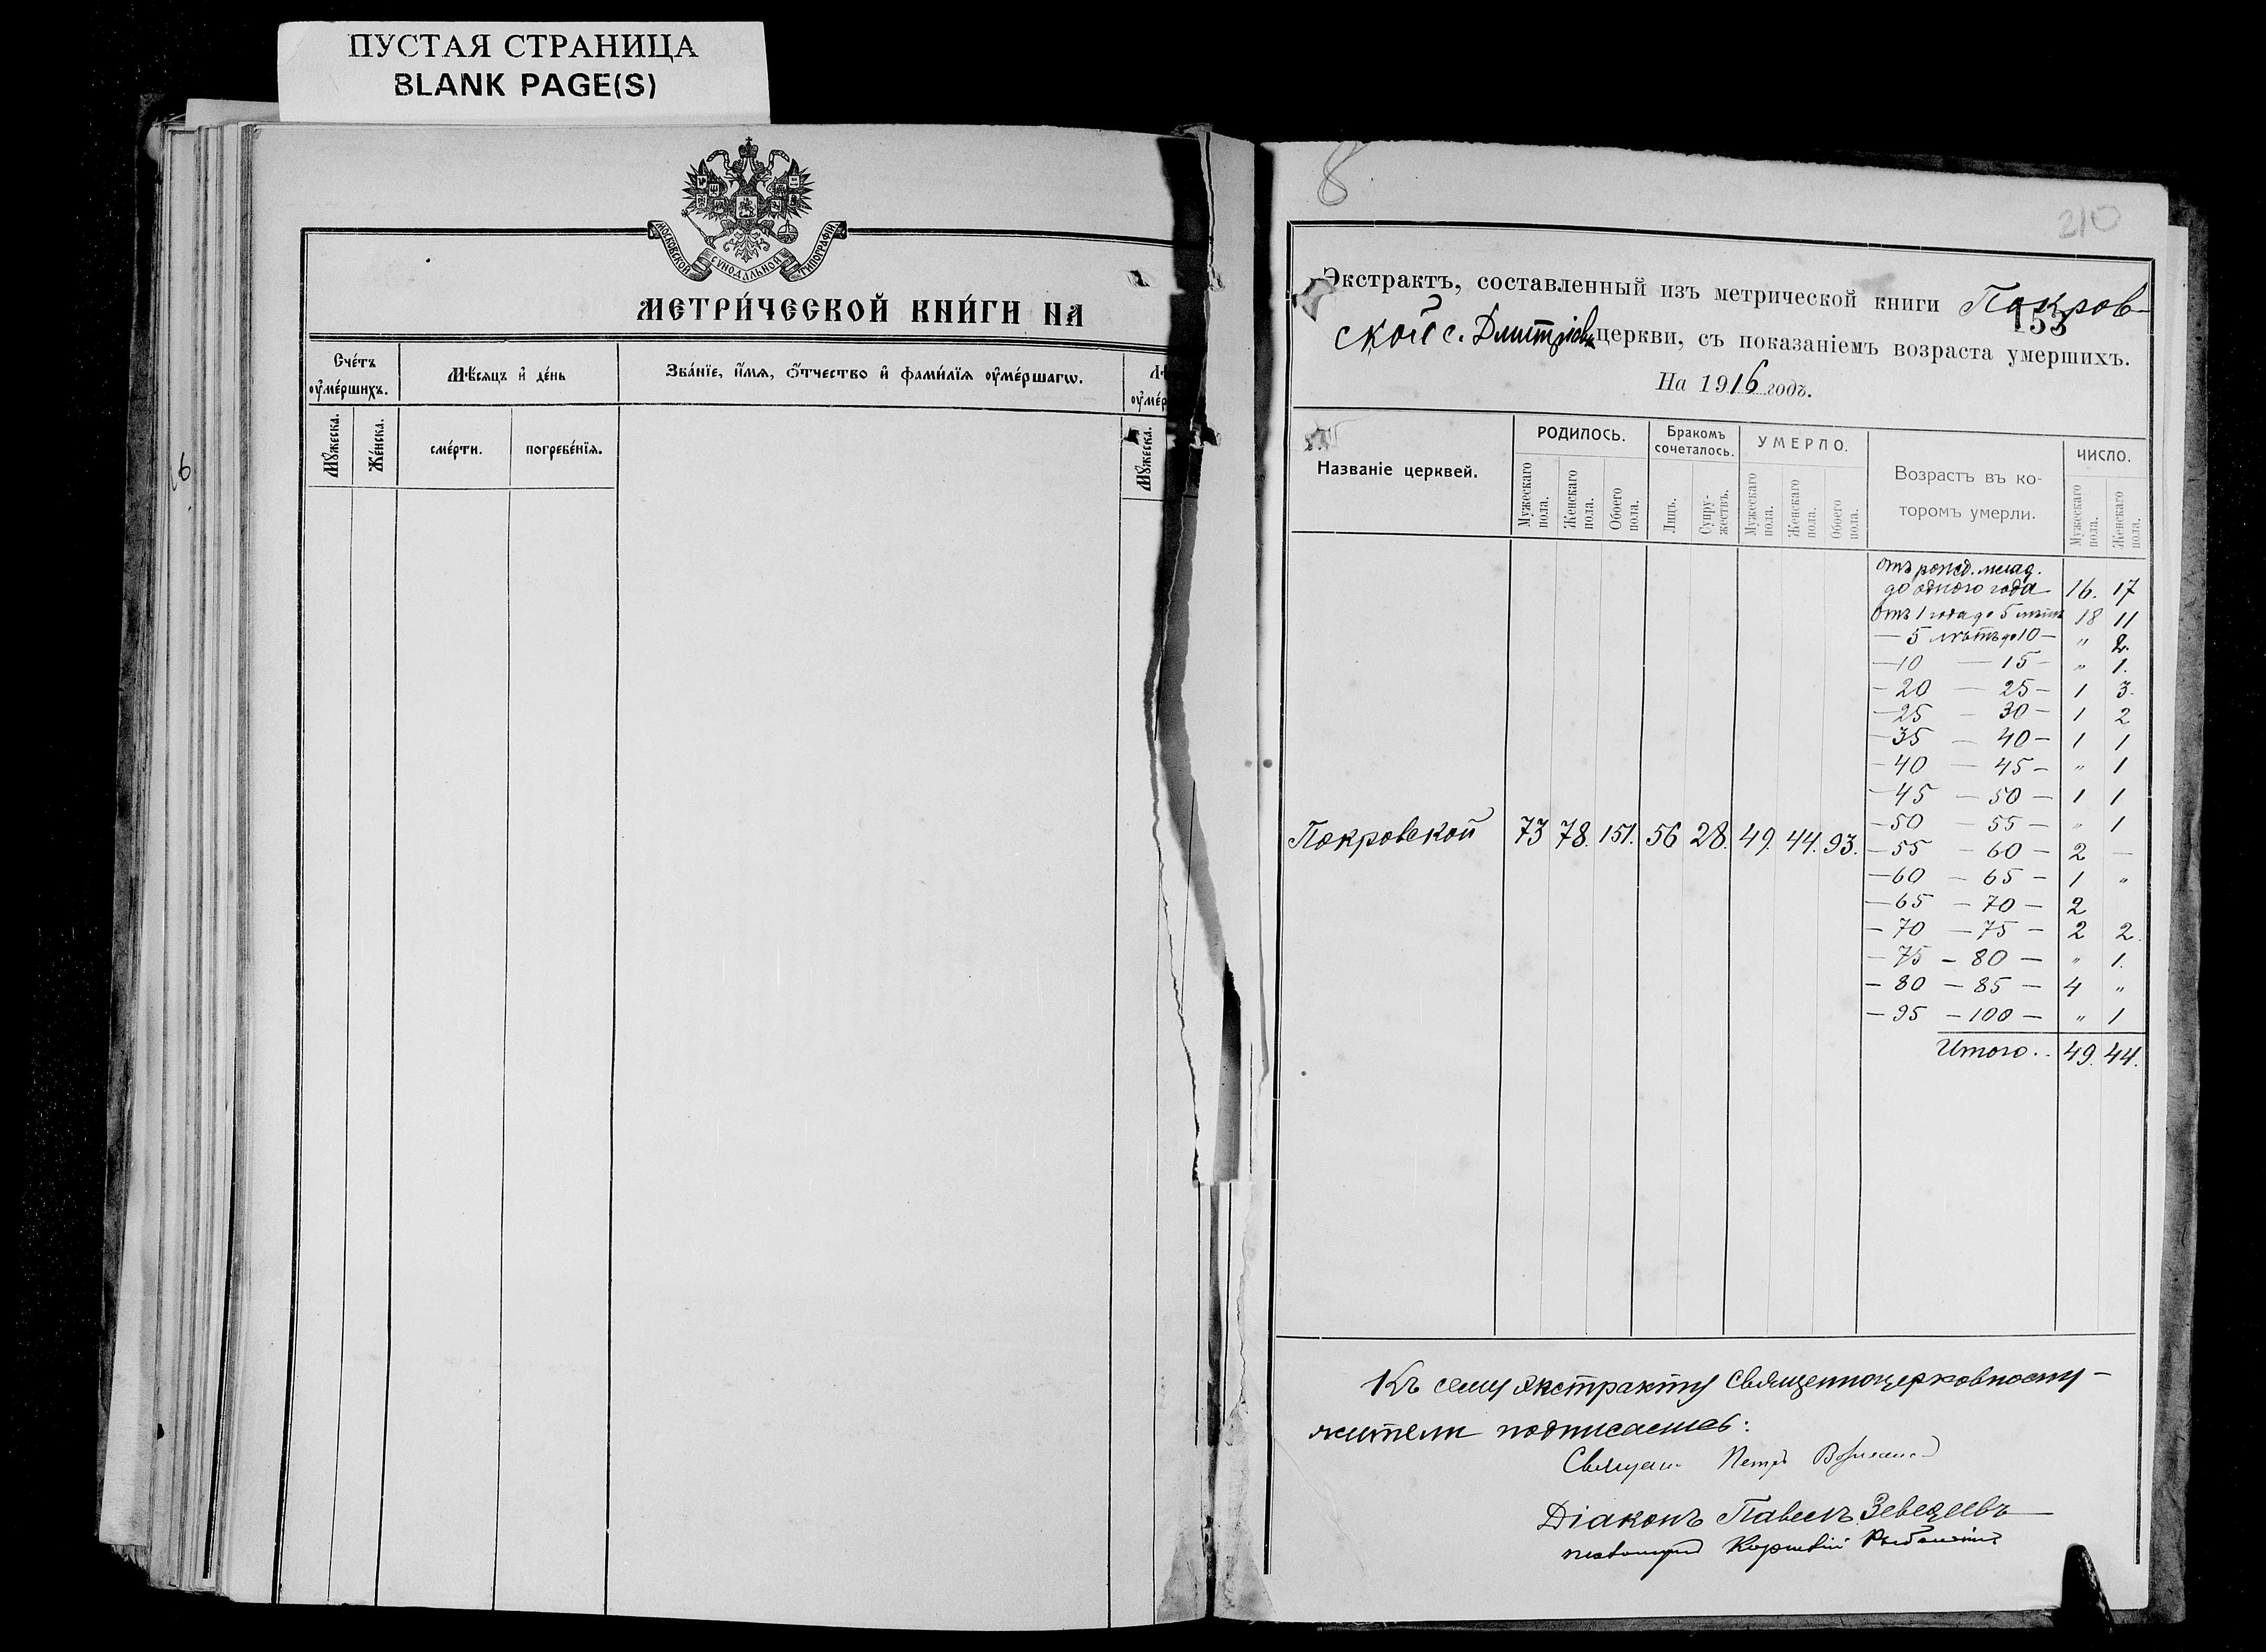 ПУСТАЯ СТРАНИЦА
BLANK PAGE(S)
МОСКОВСКОЙ СѴНОДАЛЬНОЙ ТИПОГРАФІИ
МЕТРИ́ЧЕСКОЙ КНИ́ГИ НА
Сче́тъ ᲂу҆ме́ршихъ.
Мѣ́сяцъ и҆ де́нь
Зва́нїе, и҆́мѧ, ѻ҆́тчество и҆ фами́лїѧ ᲂу҆ме́ршагѡ.
Лѣ
ᲂу҆ме́р
Мꙋ́жеска.
Же́нска.
сме́рти.
погребе́нїѧ.
Мꙋ́жеска.
6
8
210
Экстрактъ, составленный изъ метрической книги Покров-
153
ской с. Дмитріевки церкви, съ показаніемъ возраста умершихъ.
На 1916 годъ.
Названіе церквей.
РОДИЛОСЬ.
Бракомъ сочеталось.
УМЕРЛО.
Возрастъ въ ко-
торомъ умерли.
ЧИСЛО.
Мужескаго пола.
Женскаго пола.
Обоего пола.
Лицъ.
Супру-
жествъ.
Мужескаго пола.
Женскаго пола.
Обоего пола.
Мужескаго пола.
Женскаго пола.
Отъ рожд. млад.
до одного года 16. 17
Отъ 1 года до 5 лѣтъ 18 11
— 5 лѣтъ до 10 — " 2.
— 10 — 15 — " 1.
— 20 — 25 — 1 3.
— 25 — 30 — 1 2
— 35 — 40 — 1 1
— 40 — 45 — " 1
— 45 — 50 — 1 1
— 50 — 55 — " 1
Покровской 73 78. 151. 56 28. 49. 44. 93.
— 55 — 60 — 2 —
— 60 — 65 — 1 "
— 65 — 70 — 2
— 70 — 75 — 2 2.
— 75 — 80 — " 1.
— 80 — 85 — 4 "
— 95 — 100 — " 1
Итого.. 49. 44.
Къ сему экстракту священноцерковнослу-
жители подписались:
Священ. Петръ
Діаконъ Павелъ Зеведеевъ
псаломщикъ